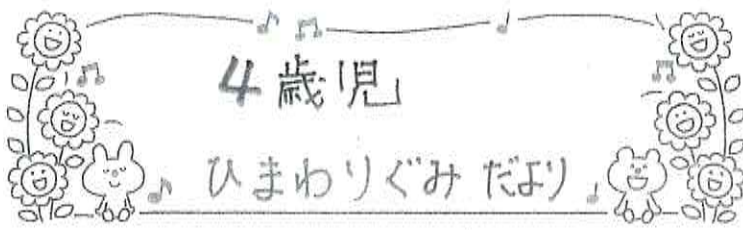 4歳児
ひまわりぐみ だより